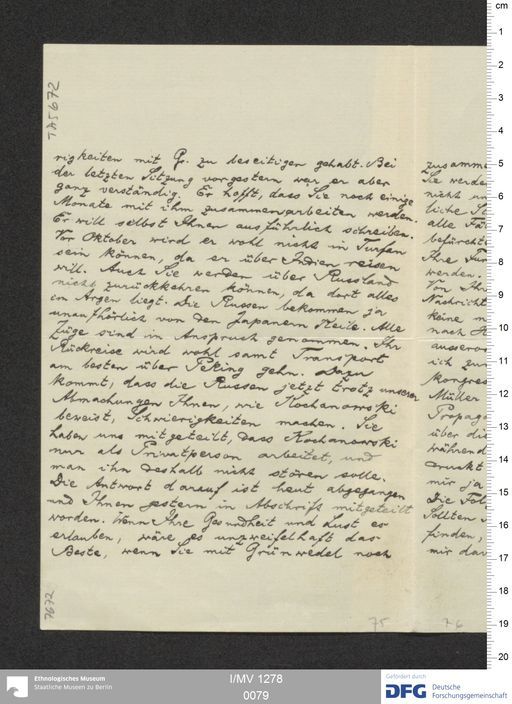 TA 5672
rigkeiten mit G. zu beseitigen gehabt. Bei
der letzten Sitzung vorgestern war er aber
ganz verständig. Er hofft, dass Sie noch einige
Monate mit ihm zusammenarbeiten werden.
Er will selbst Ihnen ausführlich schreiben.
Vor Oktober wird er wohl nicht in Turfan
sein können, da er über Indien reisen
will. Auch Sie werden über Russland
nicht zurückkehren können, da dort alles
im Argen liegt. Die Russen bekommen ja
unaufhörlich von den Japanern Keile. Alle
Züge sind in Anspruch genommen. Ihr
Rückreise wird wohl samt Transport
am besten über Peking gehn. Dazu
kommt, dass die Russen jetzt trotz unserer
Abmachungen Ihnen, wie Kochanowski
beweist, Schwierigkeiten machen. Sie
haben uns mitgeteilt, dass Kochanowski
nur als Privatperson arbeitet, und
man ihn deshalb nicht stören solle.
Die Antwort darauf ist heut abgegangen
und Ihnen gestern in Abschrift mitgeteilt
worden. Wenn Ihre Gesundheit und Lust es
erlauben, wäre es unzweifelhaft das
Beste, wenn Sie mit Grünwedel noch
7672
75
zusamme
Sie werde
nicht un
liche St
alle Fä
befürcht
Ihre Fun
werden.
Von Ihr
Nachricht
keine m
nach
ausseror
ich zur
Kongres
Müller
Propag
über die
während
druckt
mir ja
Die Fot
Sollten
finden,
mir dar
76
cm
1
2
3
4
5
6
7
8
9
10
11
12
13
14
15
16
17
18
19
20
Ethnologisches Museum
Staatliche Museen zu Berlin
I/MV 1278
0079
Gefördert durch
DFG Deutsche
Forschungsgemeinschaft